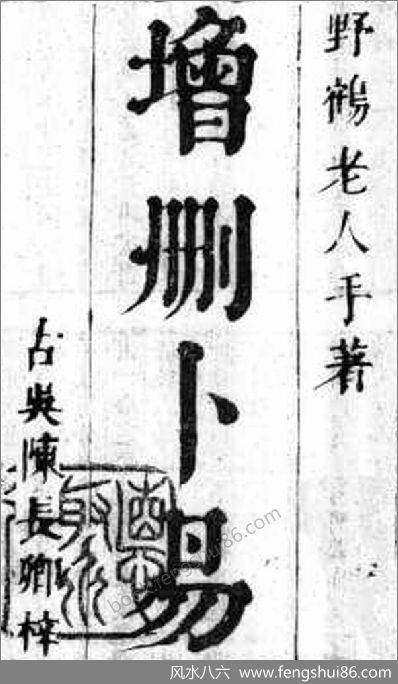 野鶴老人手著
增刪卜易
古吳陳長卿梓
book.fengshui86.com
风水八六：www.fengshui86.com